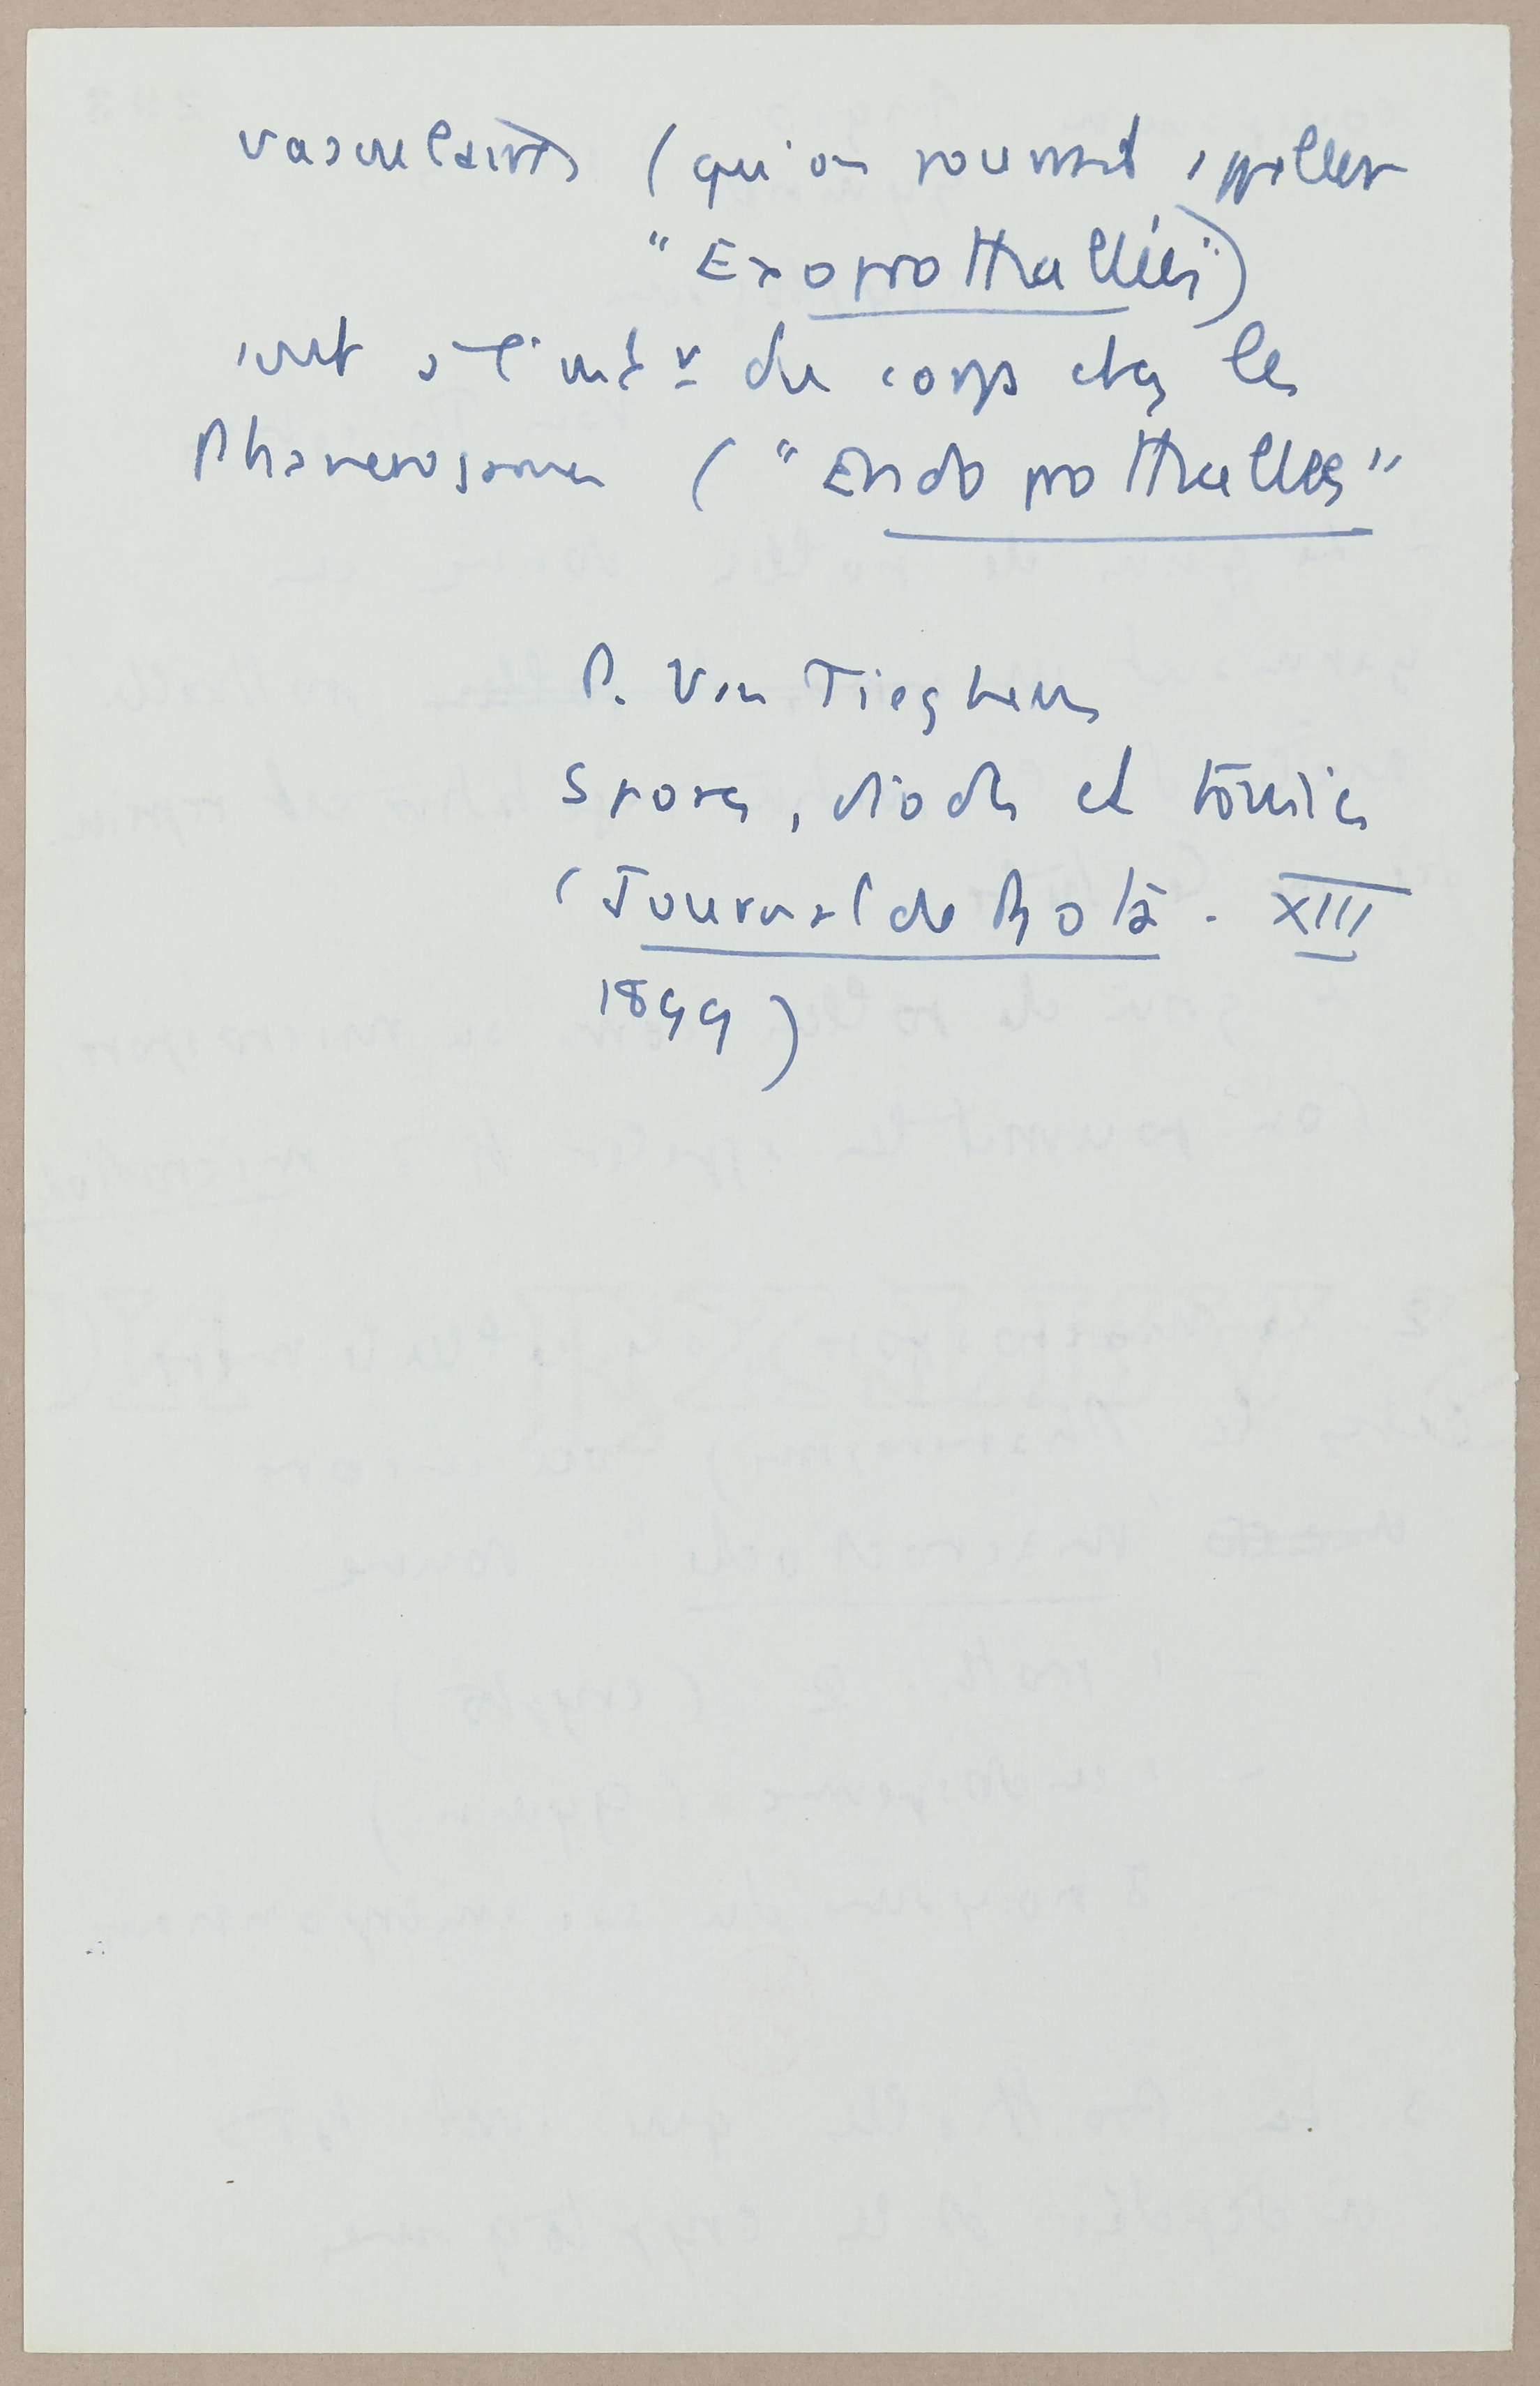 vasculaires (qu'on pourrait appeler
"Exoprothallées")
sont à l'intr du corps chez les
Phanerogames ("Endoprothallées"
P. Van Tieghem
Spores, diodes et tomies
(Journal de Bota. XIII
1899)